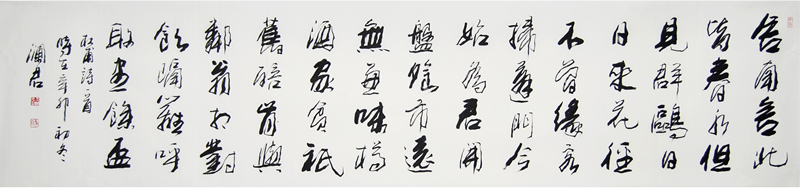 舍南舍北
皆春水但
見群鷗日
日來花徑
不曾緣客
掃蓬門今
始為君開
盤飧市遠
無兼味樽
酒家貧祇
舊醅肯與
鄰翁相對
飲隔籬呼
取盡餘盃
杜甫詩一首
時在辛卯初冬
瀾君